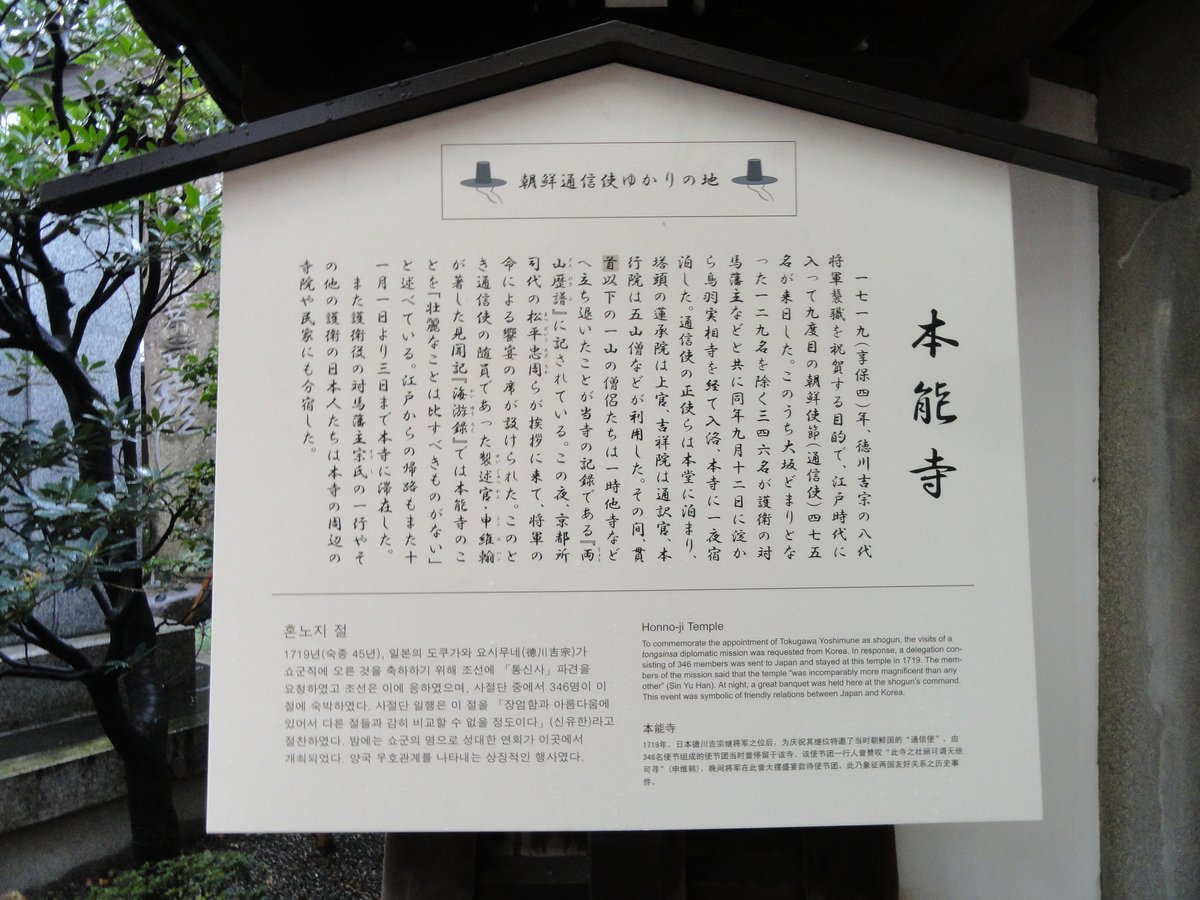 朝鮮通信使ゆかりの地
本能寺
一七一九(享保四)年、徳川吉宗の八代
将軍襲職を祝賀する目的で、江戸時代に
入って九度目の朝鮮使節(通信使)四七五
名が来日した。このうち大坂どまりとな
った一二九名を除く三四六名が護衛の対
馬藩主などと共に同年九月十二日に淀か
ら鳥羽実相寺を経て入洛、本寺に一夜宿
泊した。通信使の正使らは本堂に泊まり、
塔頭の蓮承院は上官、吉祥院は通訳官、本
行院は五山僧などが利用した。その間、貫
首以下の一山の僧侶たちは一時他寺など
へ立ち退いたことが当寺の記録である『両
山歴譜』に記されている。この夜、京都所
司代の松平忠周らが挨拶に来て、将軍の
命による饗宴の席が設けられた。このと
き通信使の随員であった製述官・申維翰
が著した見聞記『海游録』では本能寺のこ
とを『壮麗なことは比すべきものがない」
と述べている。江戸からの帰路もまた十
一月一日より三日まで本寺に滞在した。
また護衛役の対馬藩主宗氏の一行やそ
の他の護衛の日本人たちは本寺の周辺の
寺院や民家にも分宿した。
혼노지 절
1719년(숙종 45년), 일본의 도쿠가와 요시무네(德川吉宗)가
쇼군직에 오른 것을 축하하기 위해 조선에 「통신사」 파견을
요청하였고 조선은 이에 응하였으며, 사절단 중에서 346명이 이
절에 숙박하였다. 사절단 일행은 이 절을 「장엄함과 아름다움에
있어서 다른 절들과 감히 비교할 수 없을 정도이다」(신유한)라고
절찬하였다. 밤에는 쇼군의 명으로 성대한 연회가 이곳에서
개최되었다. 양국 우호관계를 나타내는 상징적인 행사였다.
Honno-ji Temple
To commemorate the appointment of Tokugawa Yoshimune as shogun, the visits of a
tongsinsa diplomatic mission was requested from Korea. In response, a delegation con-
sisting of 346 members was sent to Japan and stayed at this temple in 1719. The mem-
bers of the mission said that the temple "was incomparably more magnificent than any
other" (Sin Yu Han). At night, a great banquet was held here at the shogun's command.
This event was symbolic of friendly relations between Japan and Korea.
本能寺
1719年，日本德川吉宗继将军之位后，为庆祝其继位特邀了当时朝鲜国的“通信使”，由
346名使节组成的使节团当时曾停留于该寺。该使节团一行人曾赞叹“此寺之壮丽可谓无他
可寻”（申维韩），晚间将军在此曾大摆盛宴款待使节团。此乃象征两国友好关系之历史事
件。